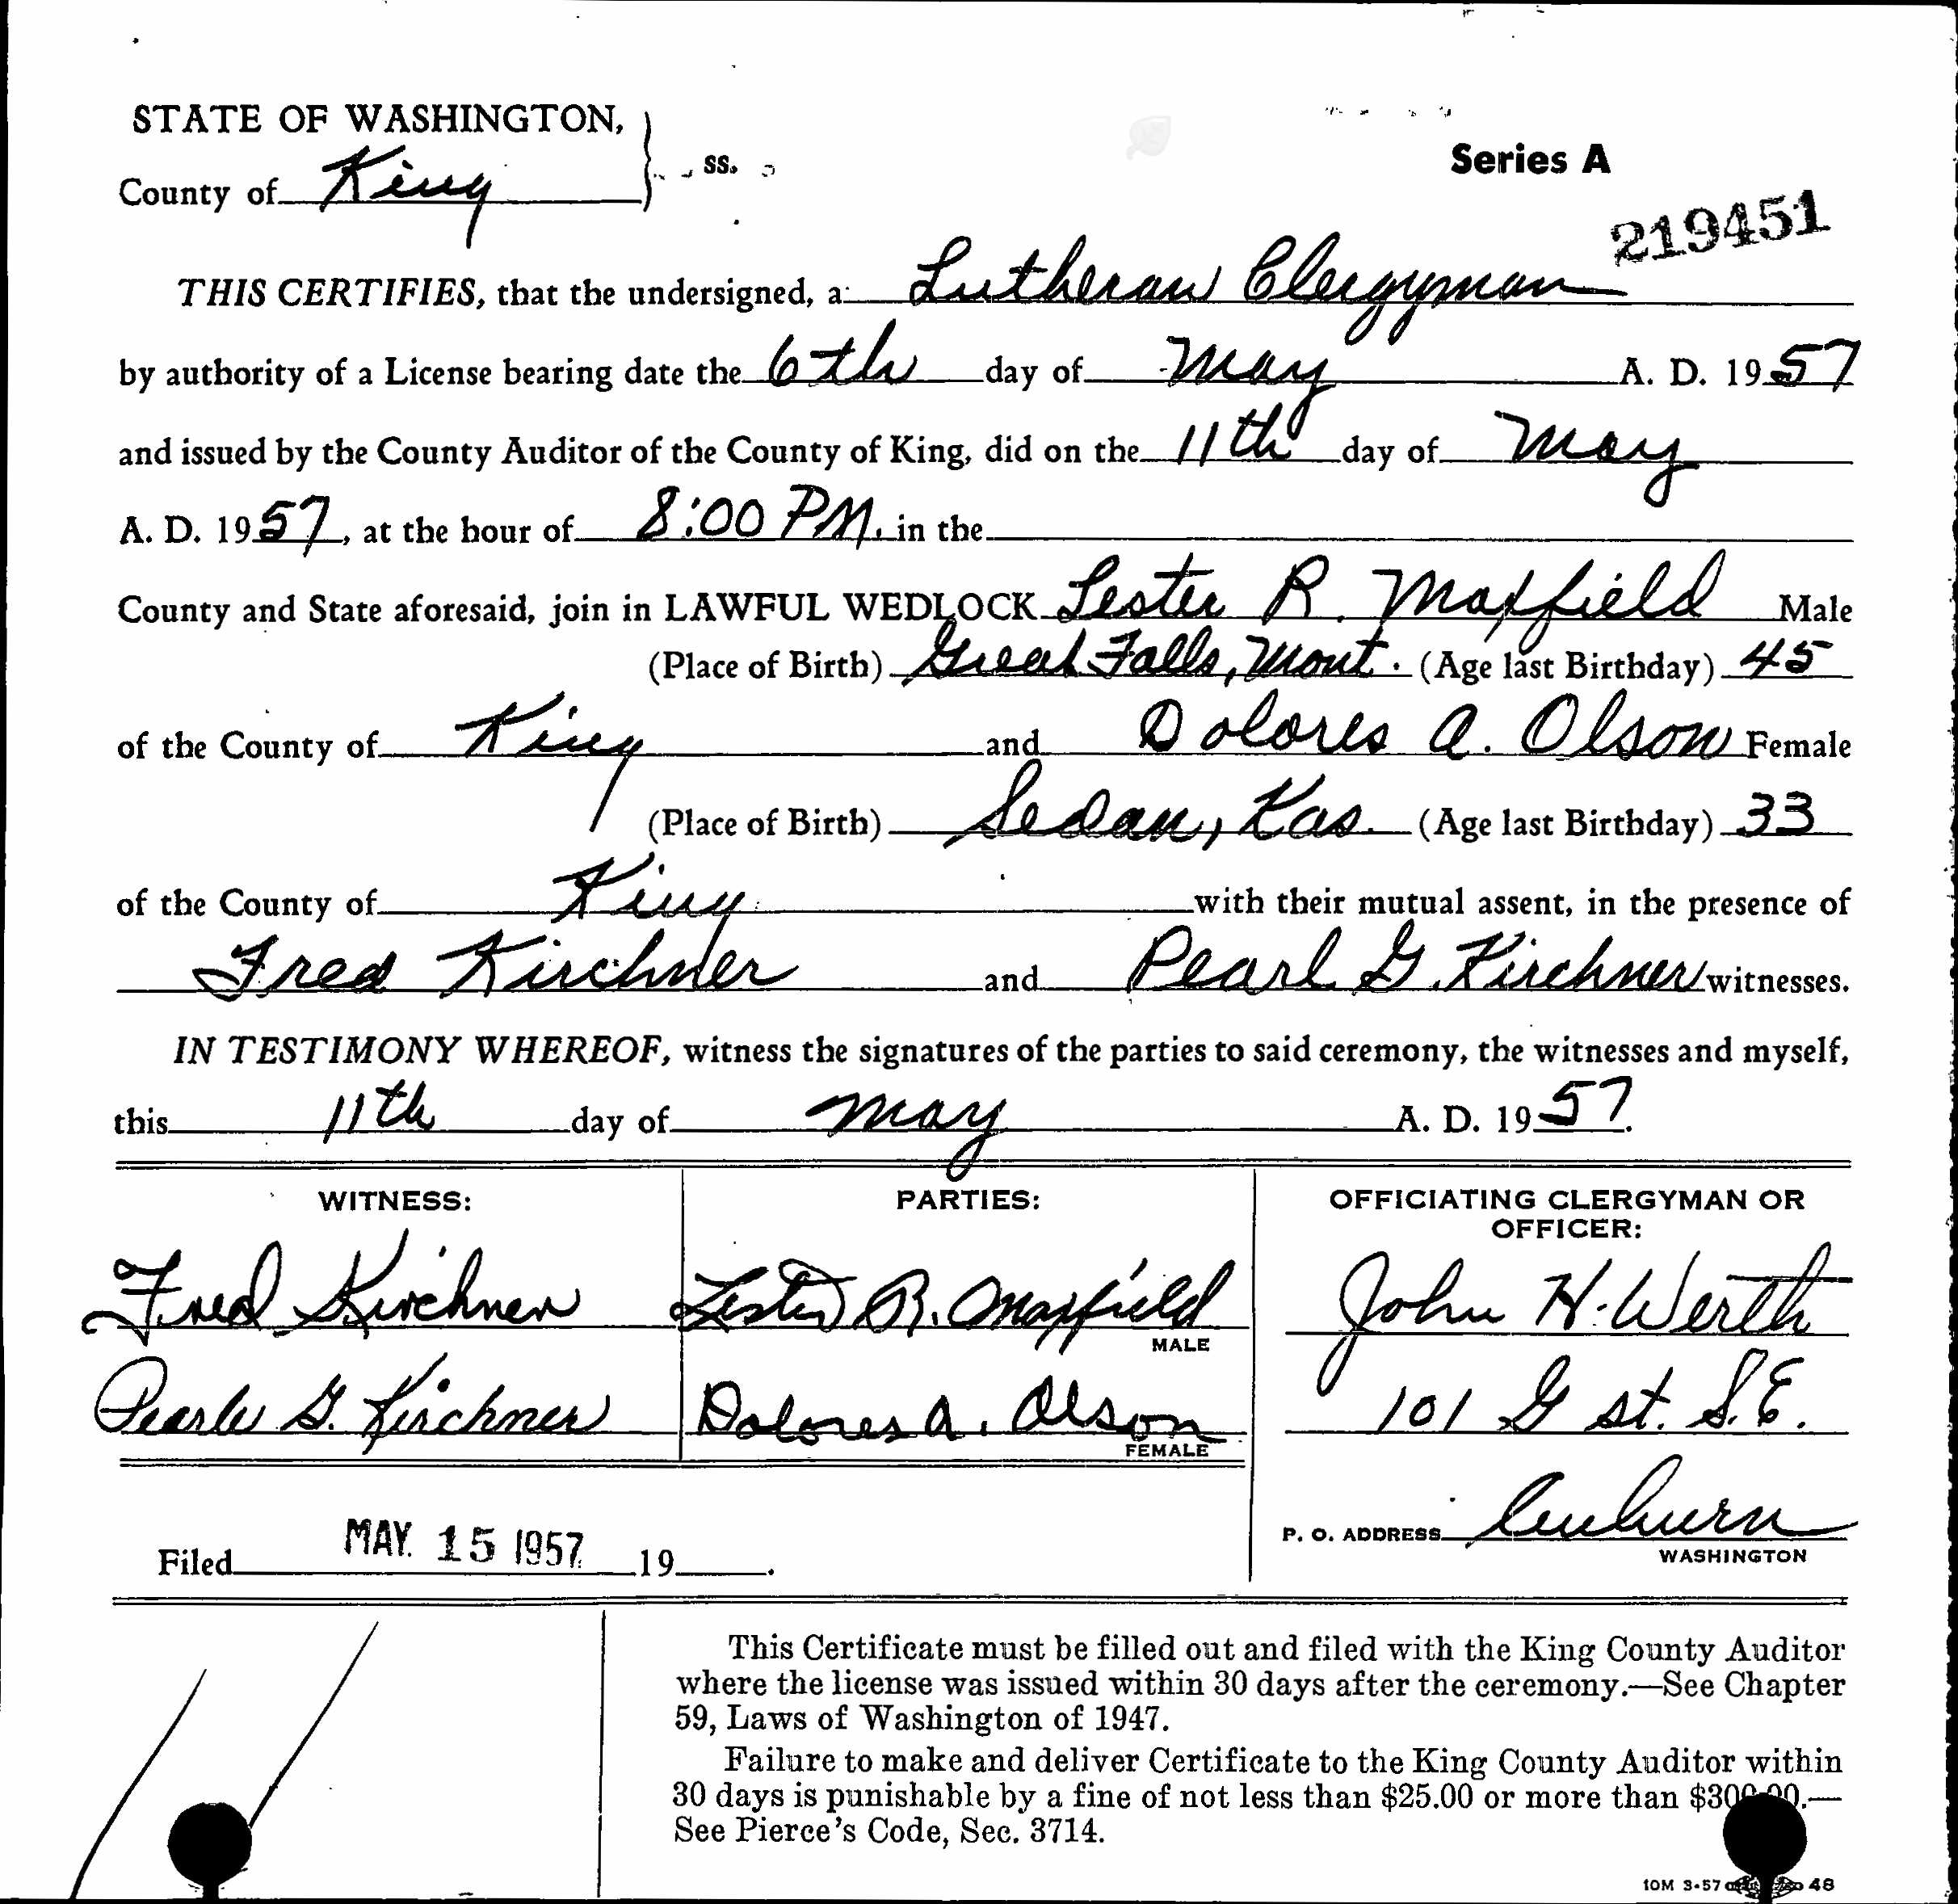 STATE OF WASHINGTON,
County of King ss.
Series A
219451
THIS CERTIFIES, that the undersigned, a Lutheran Clergyman
by authority of a License bearing date the 6th day of May A. D. 1957
and issued by the County Auditor of the County of King, did on the 11th day of May
A. D. 1957, at the hour of 8:00 PM. in the
County and State aforesaid, join in LAWFUL WEDLOCK Lester R. Maxfield Male
(Place of Birth) Great Falls, Mont. (Age last Birthday) 45
of the County of King and Dolores A. Olson Female
(Place of Birth) Sedan, Kas. (Age last Birthday) 33
of the County of King with their mutual assent, in the presence of
Fred Kirchner and Pearl G. Kirchner witnesses.
IN TESTIMONY WHEREOF, witness the signatures of the parties to said ceremony, the witnesses and myself,
this 11th day of May A. D. 1957.
WITNESS: PARTIES: OFFICIATING CLERGYMAN OR
OFFICER:
Fred Kirchner Lester R. Maxfield John H. Werth
MALE
Pearle G. Kirchner Dolores A. Olson 101 G st. S.E.
FEMALE
P. O. ADDRESS Auburn
WASHINGTON
Filed MAY 15 1957 19 .
This Certificate must be filled out and filed with the King County Auditor
where the license was issued within 30 days after the ceremony.—See Chapter
59, Laws of Washington of 1947.
Failure to make and deliver Certificate to the King County Auditor within
30 days is punishable by a fine of not less than $25.00 or more than $300.00.—
See Pierce's Code, Sec. 3714.
10M 3-57 48